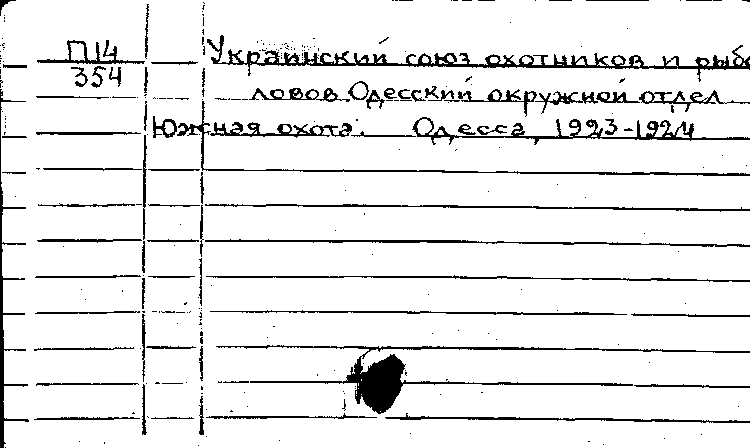 П14
354
Украинский союз охотников и рыбо
ловов. Одесский окружной отдел
Южная охота. Одесса, 1923-1924